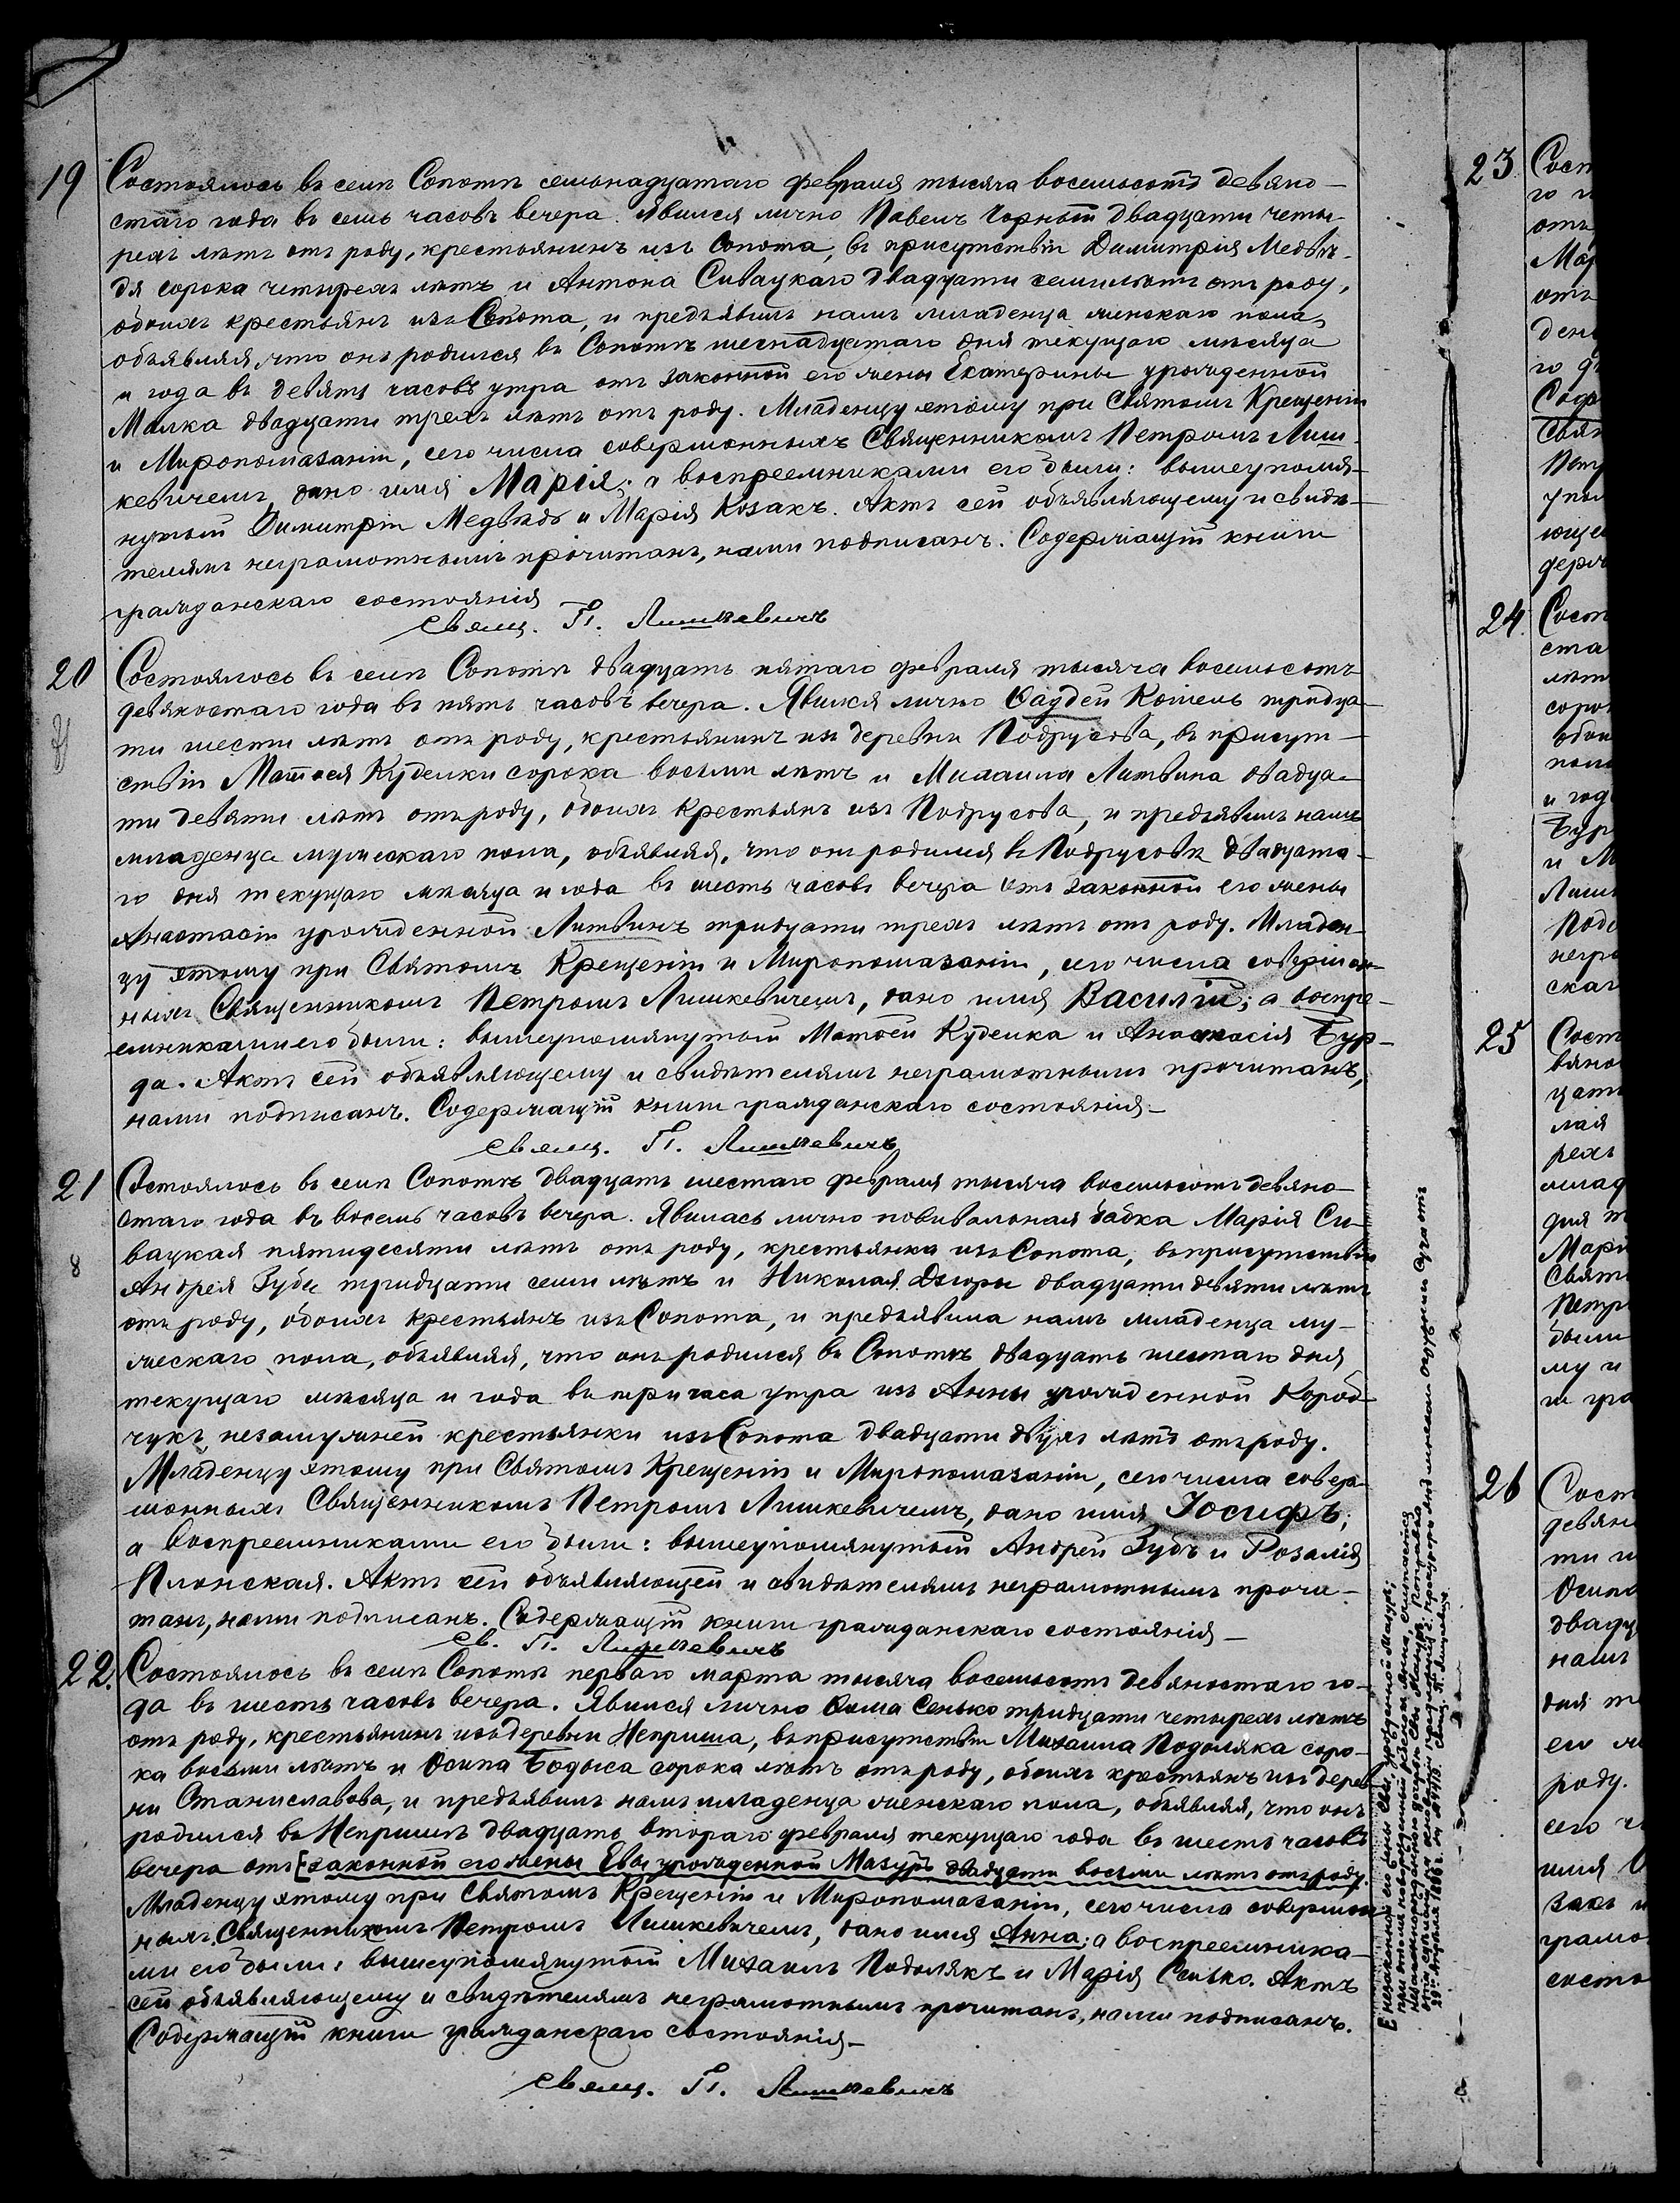 19
Состоялось въ селѣ Сопотѣ семьнадцатаго февраля тысяча восемьсотъ девяно-
стаго года въ семь часовъ вечера. Явился лично Павелъ Чорный двадцати четы-
рехъ лѣтъ отъ роду, крестьянинъ изъ Сопота, въ присутствіи Димитрія Медвѣ-
дя сорока четырехъ лѣтъ и Антона Сивацкаго двадцати семи лѣтъ отъ роду,
обоихъ крестьянъ изъ Сопота, и предъявилъ намъ младенца женскаго пола,
объявляя, что онъ родился въ Сопотѣ шеснадцатаго дня текущаго мѣсяца
и года въ девять часовъ утра отъ законной его жены Екатерины урожденной
Малка двадцати трехъ лѣтъ отъ роду. Младенцу этому при Святомъ Крещеніи
и Миропомазаніи, сего числа совершонныхъ Священникомъ Петромъ Лиш-
кевичемъ, дано имя Марія; а воспреемниками его были: вышеупомя-
нутый Димитрій Медвѣдь и Марія Козакъ. Актъ сей объявляющему и свидѣ-
телямъ неграмотнымъ прочитанъ, нами подписанъ. Содержащій книги
гражданскаго состоянія
Свящ. П. Лишкевичъ
20
Состоялось въ селѣ Сопотѣ двадцать пятаго февраля тысяча восемьсотъ
девяностаго года въ пять часовъ вечера. Явился лично Ѳаддей Котель тридца-
ти шести лѣтъ отъ роду, крестьянинъ изъ деревни Подрусова, въ присут-
ствіи Матѳея Куделки сорока восьми лѣтъ и Михаила Литвина двадца-
ти девяти лѣтъ отъ роду, обоихъ крестьянъ изъ Подрусова, и предъявилъ намъ
младенца мужескаго пола, объявляя, что онъ родился въ Подрусовѣ двадцата-
го дня текущаго мѣсяца и года въ шесть часовъ вечера отъ законной его жены
Анастасіи урожденной Литвинъ тридцати трехъ лѣтъ отъ роду. Младен-
цу этому при Святомъ Крещеніи и Миропомазаніи, сего числа совершон-
ныхъ Священникомъ Петромъ Лишкевичемъ, дано имя Василій; а воспре-
емниками его были: вышеупомянутый Матѳей Куделка и Анастасія Бур-
да. Актъ сей объявляющему и свидѣтелямъ неграмотнымъ прочитанъ,
нами подписанъ. Содержащій книги гражданскаго состоянія
Свящ. П. Лишкевичъ
21
8
Состоялось въ селѣ Сопотѣ двадцать шестаго февраля тысяча восемьсотъ девяно-
стаго года въ восемь часовъ вечера. Явилась лично повивальная бабка Марія Си-
вацкая пятидесяти лѣтъ отъ роду, крестьянка изъ Сопота, въ присутствіи
Андрея Зубъ тридцати семи лѣтъ и Николая двадцати девяти лѣтъ
отъ роду, обоихъ крестьянъ изъ Сопота, и предъявила намъ младенца му-
жескаго пола, объявляя, что онъ родился въ Сопотѣ двадцать шестаго дня
текущаго мѣсяца и года въ три часа утра изъ Анны урожденной Короб-
чукъ незамужней крестьянки изъ Сопота двадцати двухъ лѣтъ отъ роду.
Младенцу этому при Святомъ Крещеніи и Миропомазаніи, сего числа совер-
шонныхъ Священникомъ Петромъ Лишкевичемъ, дано имя Іосифъ;
а воспреемниками его были: вышеупомянутый Андрей Зубъ и Розалія
Плонская. Актъ сей объявляющей и свидѣтелямъ неграмотнымъ прочи-
танъ, нами подписанъ. Содержащій книги гражданскаго состоянія
Св. П. Лишкевичъ
22.
Состоялось въ селѣ Сопотѣ перваго марта тысяча восемьсотъ девяностаго го-
да въ шесть часовъ вечера. Явился лично Ѳома Сенько тридцати четырехъ лѣтъ
отъ роду, крестьянинъ изъ деревни Неприша, въ присутствіи Михаила Подоляка соро-
ка восьми лѣтъ и Осипа Бодыса сорока лѣтъ отъ роду, обоихъ крестьянъ изъ дерев-
ни Станиславова, и предъявилъ намъ младенца женскаго пола, объявляя, что онъ
родился въ Непришѣ двадцать втораго февраля текущаго года въ шесть часовъ
вечера отъ [законной его жены Евы урожденной Мазуръ двадцати восьми лѣтъ отъ роду.
Младенцу этому при Святомъ Крещеніи и Миропомазаніи, сего числа совершон-
ныхъ Священникомъ Петромъ Лишкевичемъ, дано имя Анна; а воспреемника-
ми его были: вышеупомянутый Михаилъ Подолякъ и Марія Сенько. Актъ
сей объявляющему и свидѣтелямъ неграмотнымъ прочитанъ, нами подписанъ.
Содержащій книги гражданскаго состоянія
Свящ. П. Лишкевичъ
[незаконной его жены Евы, урожденной Мазуръ;
при этомъ новорожденный Анна, считается
незаконнорожденною дочерью Евы Мазуръ. Поправка
Свящ. П. Лишкевичъ
23
Сост
го г
отъ
Мар
отъ
день
го ф
Софі
Свят
Петр
упом
ющем
держ
24.
Сост
ста
лѣт
соро
обои
пола
и год
Бур
и М
Лишк
Подо
негра
скаг
25
Сост
вяно
цат
лая
рехъ
млад
дня т
Марі
Свят
Петр
были
му и
и гра
26
Сост
девян
ти ш
Осипа
двадц
намъ
дня т
его ж
роду.
сего ч
имя
закъ и
грамо
состо